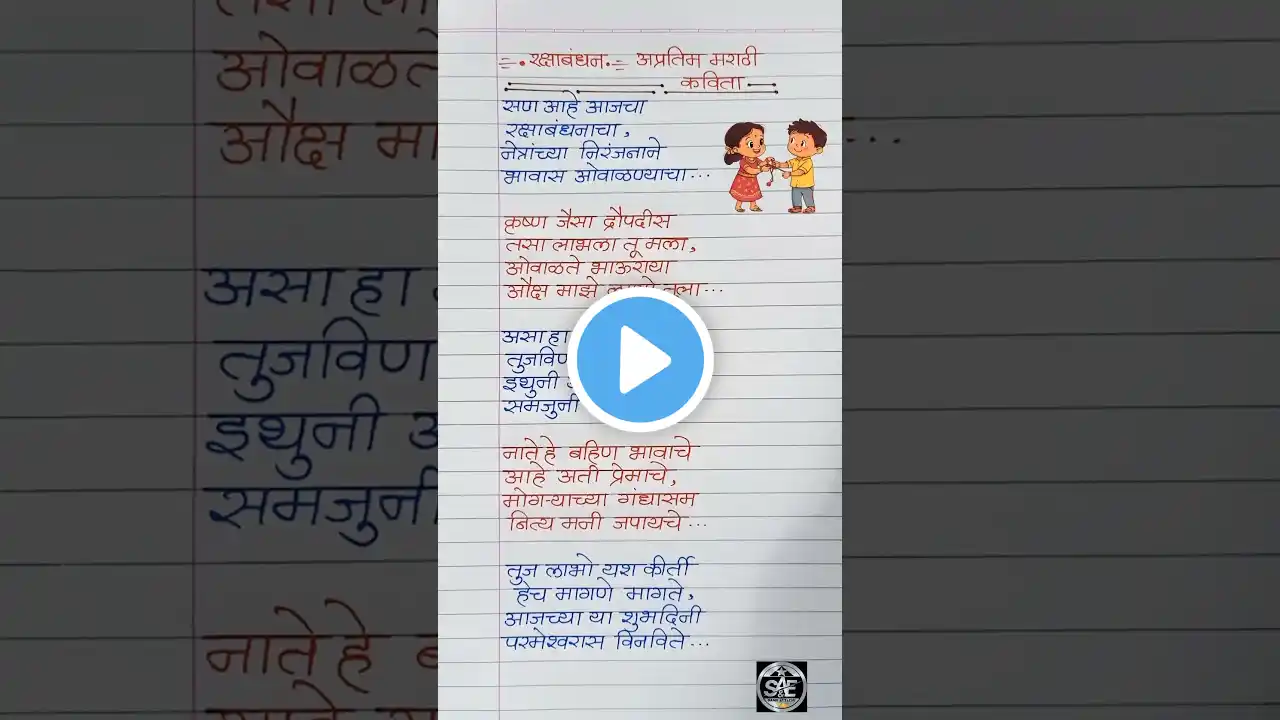 =.रक्षाबंधन.= अप्रतिम मराठी
कविता
सण आहे आजचा
रक्षाबंधनाचा,
नेत्रांच्या निरंजनाने
भावास ओवाळण्याचा...
कृष्ण जैसा द्रौपदीस
तसा लाभला तू मला,
ओवाळते भाऊराया
औक्ष माझे तुला...
असा हा
तुजविण
इथुनी
समजुनी
नाते हे बहिण भावाचे
आहे अती प्रेमाचे,
मोगऱ्याच्या गंधासम
नित्य मनी जपायचे...
तुज लाभो यश कीर्ती
हेच मागणे मागते,
आजच्या या शुभदिनी
परमेश्वरास विनविते...
S&E